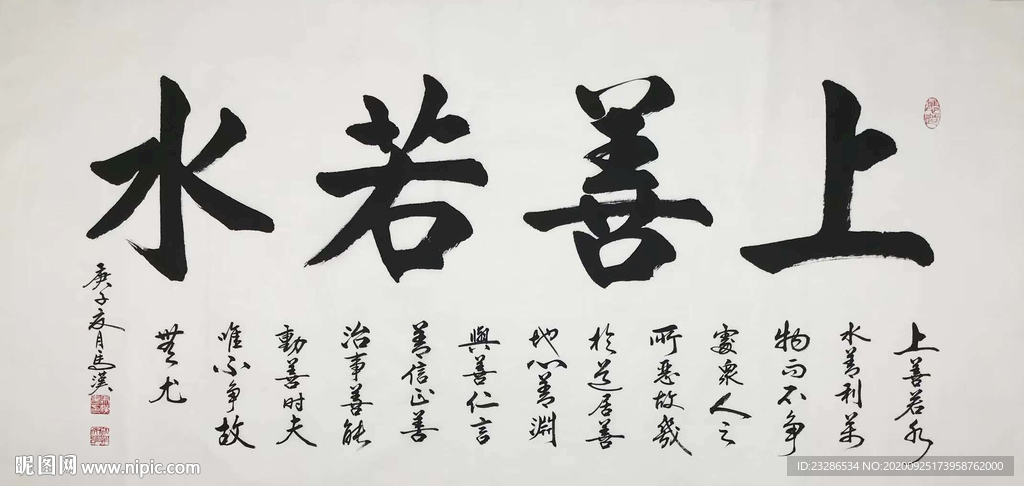 上善若水
上善若水
水善利萬
物而不争
處衆人之
所惡故幾
於道居善
地心善淵
與善仁言
善信正善
治事善能
動善时夫
唯不争故
無尤
庚子夏月馬
昵图网 www.nipic.com
ID:23286534 NO:20200925173958762000